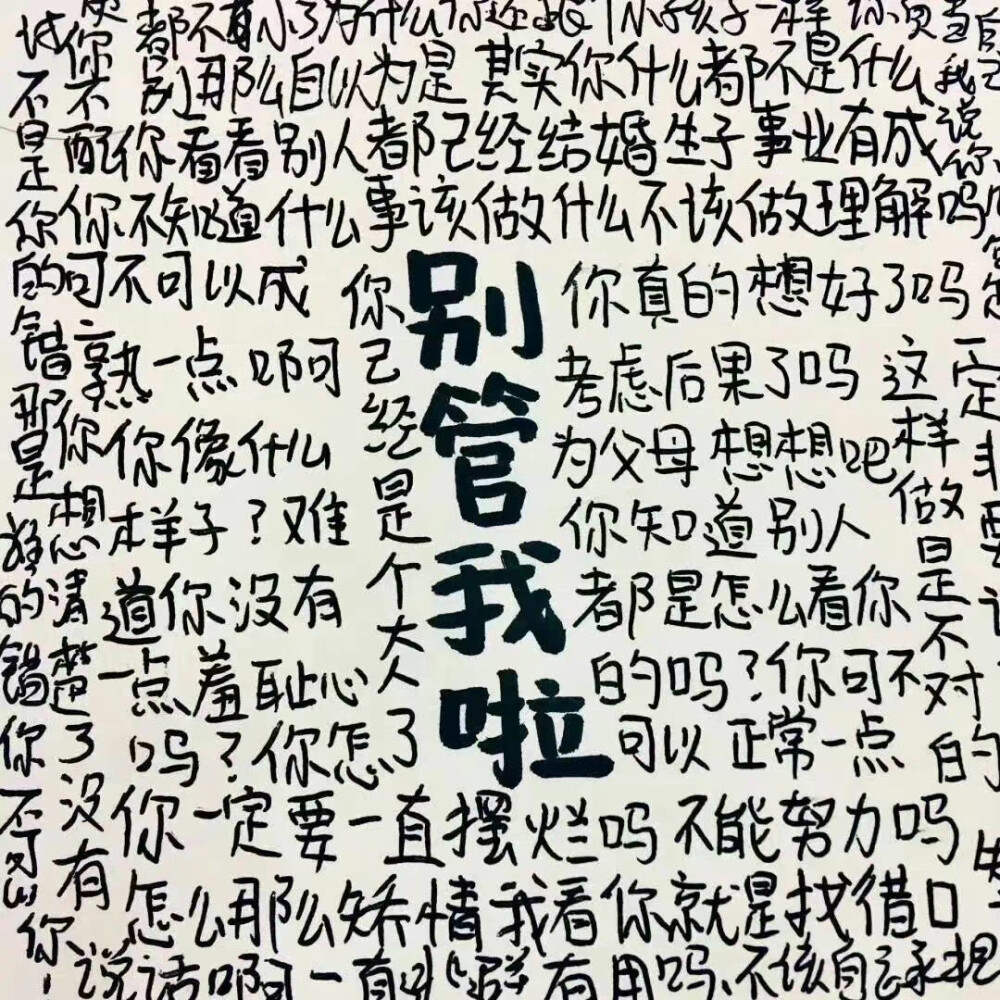 都不小了为什么你还跟个小孩子一样
别那么自以为是其实你什么都不是什么
不配你看看别人都已经结婚生子事业有成
你不知道什么事该做什么不该做理解吗
可不可以成熟一点啊
你像什么样子？难道你没有一点羞耻心吗？你怎了
你已经是个大人
别管我啦
你真的想好了吗
考虑后果了吗
为父母想想吧
你知道别人都是怎么看你的吗？你可不可以正常一点
这样做是不对的
你想清楚了没有
不是你的错那是谁的错
你一定要一直摆烂吗不能努力吗
怎么那么矫情我看你就是找借口
说话啊一直
有用吗
不该自